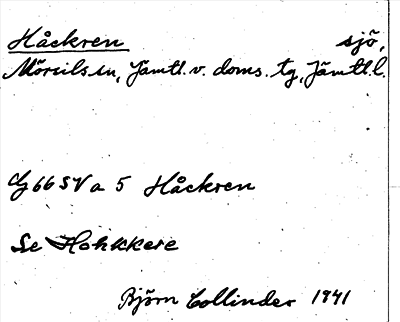 Håckren sjö,
Mörsils sn, Jämtl. v. doms. tg, Jämtl. l.
Cg 66 SV a 5 Håckren
Se Hohkkere
Björn Collinder 1941